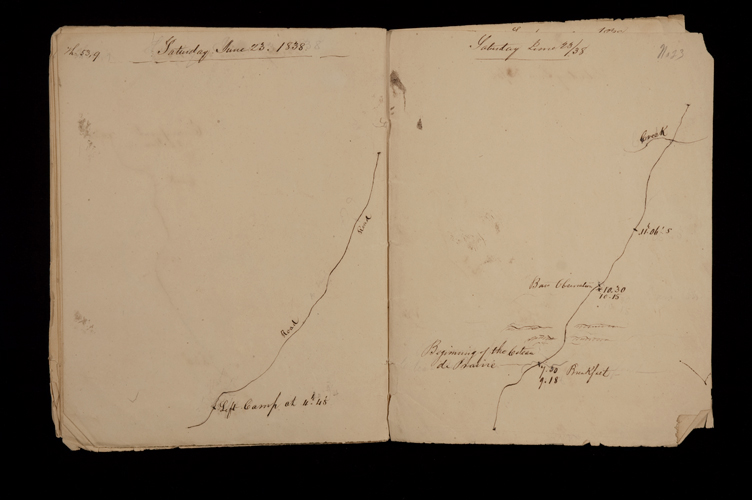 Saturday June 23. 1838
Road
Road
Left Camp at 4h. 48
Saturday June 23/38
Creek
11h. 06' 5
Bar Observation
10.30
10.15
Beginning of the Coteau
de Prairie
7.30 Breakfast
9.18